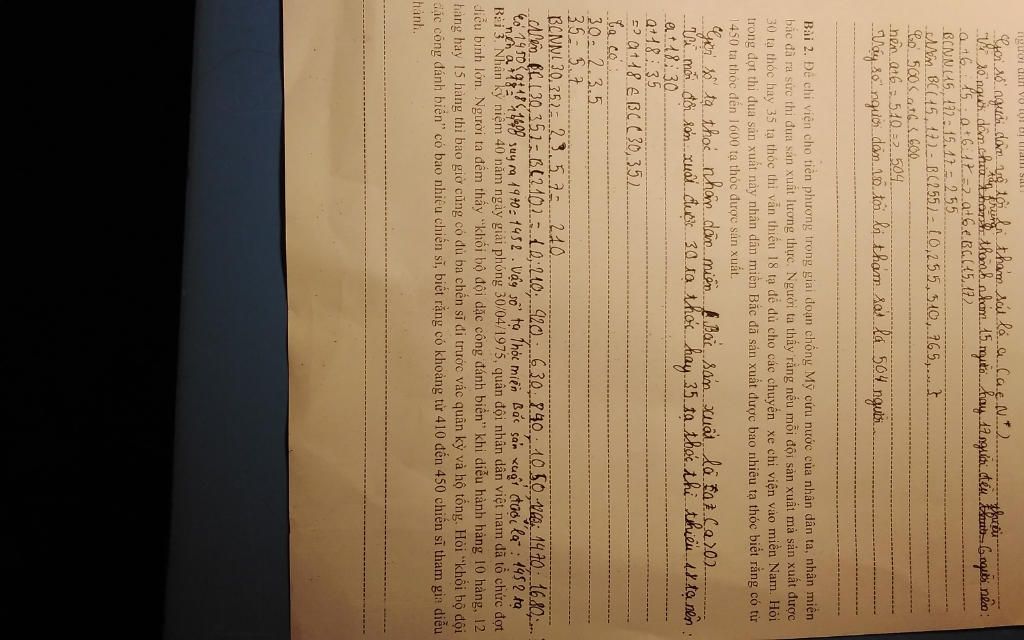 Gọi số người dân vô tội bị thảm sát là a (a ∈ N*)
Vì số người dân xếp thành nhóm 15 người hay 17 người đều thiếu 6 người nên:
a+6 ⋮ 15, a+6 ⋮ 17 => a+6 ∈ BC(15,17)
BCNN(15,17) = 15.17 = 255
Nên BC(15,17) = B(255) = {0,255,510,765,...}
Có 500 < a+6 < 600
nên a+6 = 510 => 504
Vậy số người dân vô tội bị thảm sát là 504 người
Bài 2. Để chi viện cho tiền phương trong giai đoạn chống Mỹ cứu nước của nhân dân ta, nhân miền
bắc đã ra sức thi đua sản xuất lương thực. Người ta thấy rằng nếu mỗi đội sản xuất mà sản xuất được
30 tạ thóc hay 35 tạ thóc thì vẫn thiếu 18 tạ để đủ cho các chuyến xe chi viện vào miền Nam. Hỏi
trong đợt thi đua sản xuất này nhân dân miền Bắc đã sản xuất được bao nhiêu tạ thóc biết rằng có từ
1450 tạ thóc đến 1600 tạ thóc được sản xuất.
Gọi số tạ thóc nhân dân miền Bắc sản xuất là (a>0)
Vì mỗi đội sản xuất được 30 tạ thóc hay 35 tạ thóc thì thiếu 18 tạ nên:
a+18 ⋮ 30
a+18 ⋮ 35
=> a+18 ∈ BC(30,35)
Ta có:
30 = 2.3.5
35 = 5.7
BCNN(30,35) = 2.3.5.7 = 210
Nên BC(30,35) = B(210) = 0; 210; 420; 630; 840; 1050; 1470; 1680;...
suy ra 1470 = 1452. Vậy số tạ Thóc miền Bắc sản xuất được là: 1452 tạ
Bài 3. Nhân kỷ niệm 40 năm ngày giải phóng 30/04/1975, quân đội nhân dân việt nam đã tổ chức đợt
diễu binh lớn. Người ta đếm thấy "khối bộ đội đặc công đánh biển" khi diễu hành hàng 10 hàng, 12
hàng hay 15 hàng thì bao giờ cũng có đủ ba chến sĩ đi trước vác quân kỳ và hộ tống. Hỏi "khối bộ đội
đặc công đánh biển" có bao nhiêu chiến sĩ, biết rằng có khoảng từ 410 đến 450 chiến sĩ tham gia diễu
hành.